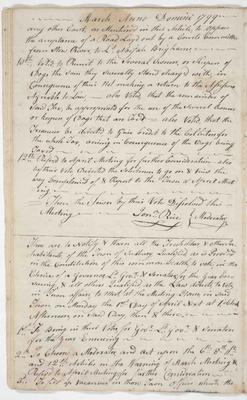 March Anno Domini 1799
any other Court, as Mentioned in this Article, to oppose
the acceptance of a Road layed out by a Courts Committee
from Mr Prince, to L. Bingham
10th Voted to Permit the Several Owners, or Keepers of
Dogs the Sum they Severally Stand charged with in
Consequence of their Not making a return to the Assessors
Agreeable to Law, also Voted that the remainder of
Said Tax, be appropriated for the use of the Several Owners
or keepers of Dogs that are Paid also Voted that the
Treasurer be directed to Give Credit to the Collectors for
the whole Tax, arising in Consequence of the Dogs being
Taxed
12th Refered to April Meeting for further Consideration also
by their Vote Directed the Selectmen to go on & find the
way Complained of & Report to the Town at April Meet
ing
Then the Town by their Vote Dissolved this
Meeting Moderator
These are to Notify & Warn all the Freeholders & other In-
habitants of the Town Qualified as Provided
in the Constitution of the Commonwealth, to vote in the
Choice of a Governor, Lt. Govr. & Senators for the Year Now
ensuing, & all others Qualified as the Law directs to vote
in Town affairs to Meet at the Meeting House in Said
Town on Monday the 1st Day of April Next at 1 oClock
Afternoon on Said Day, then & there
1st To Bring in their Votes for Govr Lt Govr & Senators
for the Year Ensuing
2d To Choose a Moderator, and act upon the 6th 8th
and 12th Articles in the Warning of March Meeting &
Refered to April Meeting for further Consideration
3d To fill up Vacancies in those Town offices which the